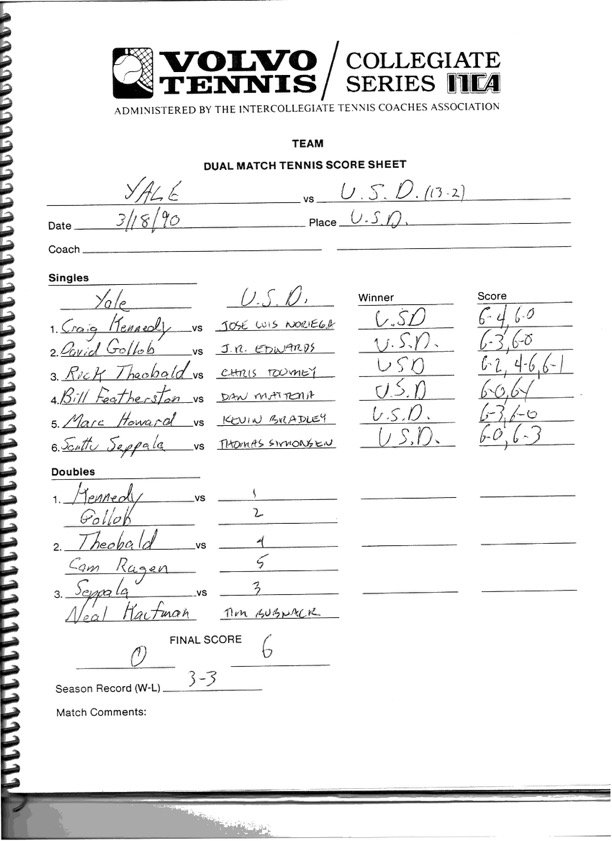 VOLVO TENNIS / COLLEGIATE SERIES ITCA
ADMINISTERED BY THE INTERCOLLEGIATE TENNIS COACHES ASSOCIATION
TEAM
DUAL MATCH TENNIS SCORE SHEET
YALE vs U.S.D. (13-2)
Date 3/18/90 Place U.S.D.
Coach
Singles
Yale U.S.D. Winner Score
1. Craig Kennedy vs JOSE LUIS NORIEGA U.SD 6-4 6-0
2. David Gollob vs J.R. EDWARDS U.S.D. 6-3, 6-0
3. Rick Theobald vs CHRIS TOOMEY USD 6-2, 4-6, 6-1
4. Bill Featherston vs DAN MATTERA U.S.D 6-0, 6-1
5. Marc Howard vs KEVIN BRADLEY U.S.D. 6-3, 6-0
6. Seppala vs THOMAS SIMONSEN U S.D. 6-0, 6-3
Doubles
1. Kennedy vs 1
Gollob 2
2. Theobald vs 4
Cam Ragen 5
3. Seppala vs 3
Neal Kaufman TIM
FINAL SCORE
0 6
Season Record (W-L) 3-3
Match Comments: